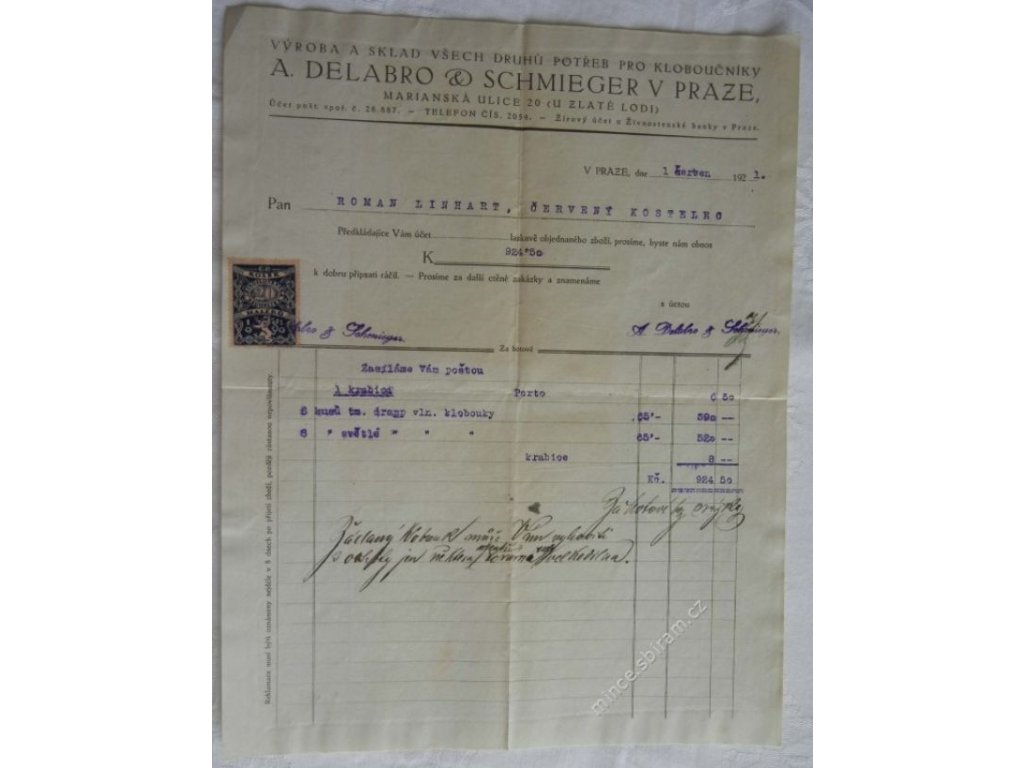 VÝROBA A SKLAD VŠECH DRUHŮ POTŘEB PRO KLOBOUČNÍKY
A. DELABRO & SCHMIEGER V PRAZE,
MARIANSKÁ ULICE 20 (U ZLATÉ LODI)
Účet pošt. spoř. č. 28.887. — TELEFON ČÍS. 2054. — Žirový účet u Živnostenské banky v Praze.
V PRAZE, dne 1 červen 1921.
Pan ROMAN LINHART, ČERVENÝ KOSTELEC
Předkládajíce Vám účet laskavě objednaného zboží, prosíme, byste nám obnos
K 924'50
k dobru připsati ráčil. — Prosíme za další ctěné zakázky a znamenáme
s úctou
KOLEK
20
HALÉŘŮ
& Schmieger.
A. Delabro & Schmieger.
Za hotové
Zasíláme Vám poštou
1 krabici Porto 6 50
6 kusů tm. drapp vln. klobouky 65'- 390 --
6 " světlé " " " 65'- 520 --
krabice 8 --
Kč. 924 50
může Vám
jen
Reklamace musí býti oznámeny nejdéle v 8 dnech po přijetí zboží, později zůstanou nepovšimnuty.
mince.sbiram.cz